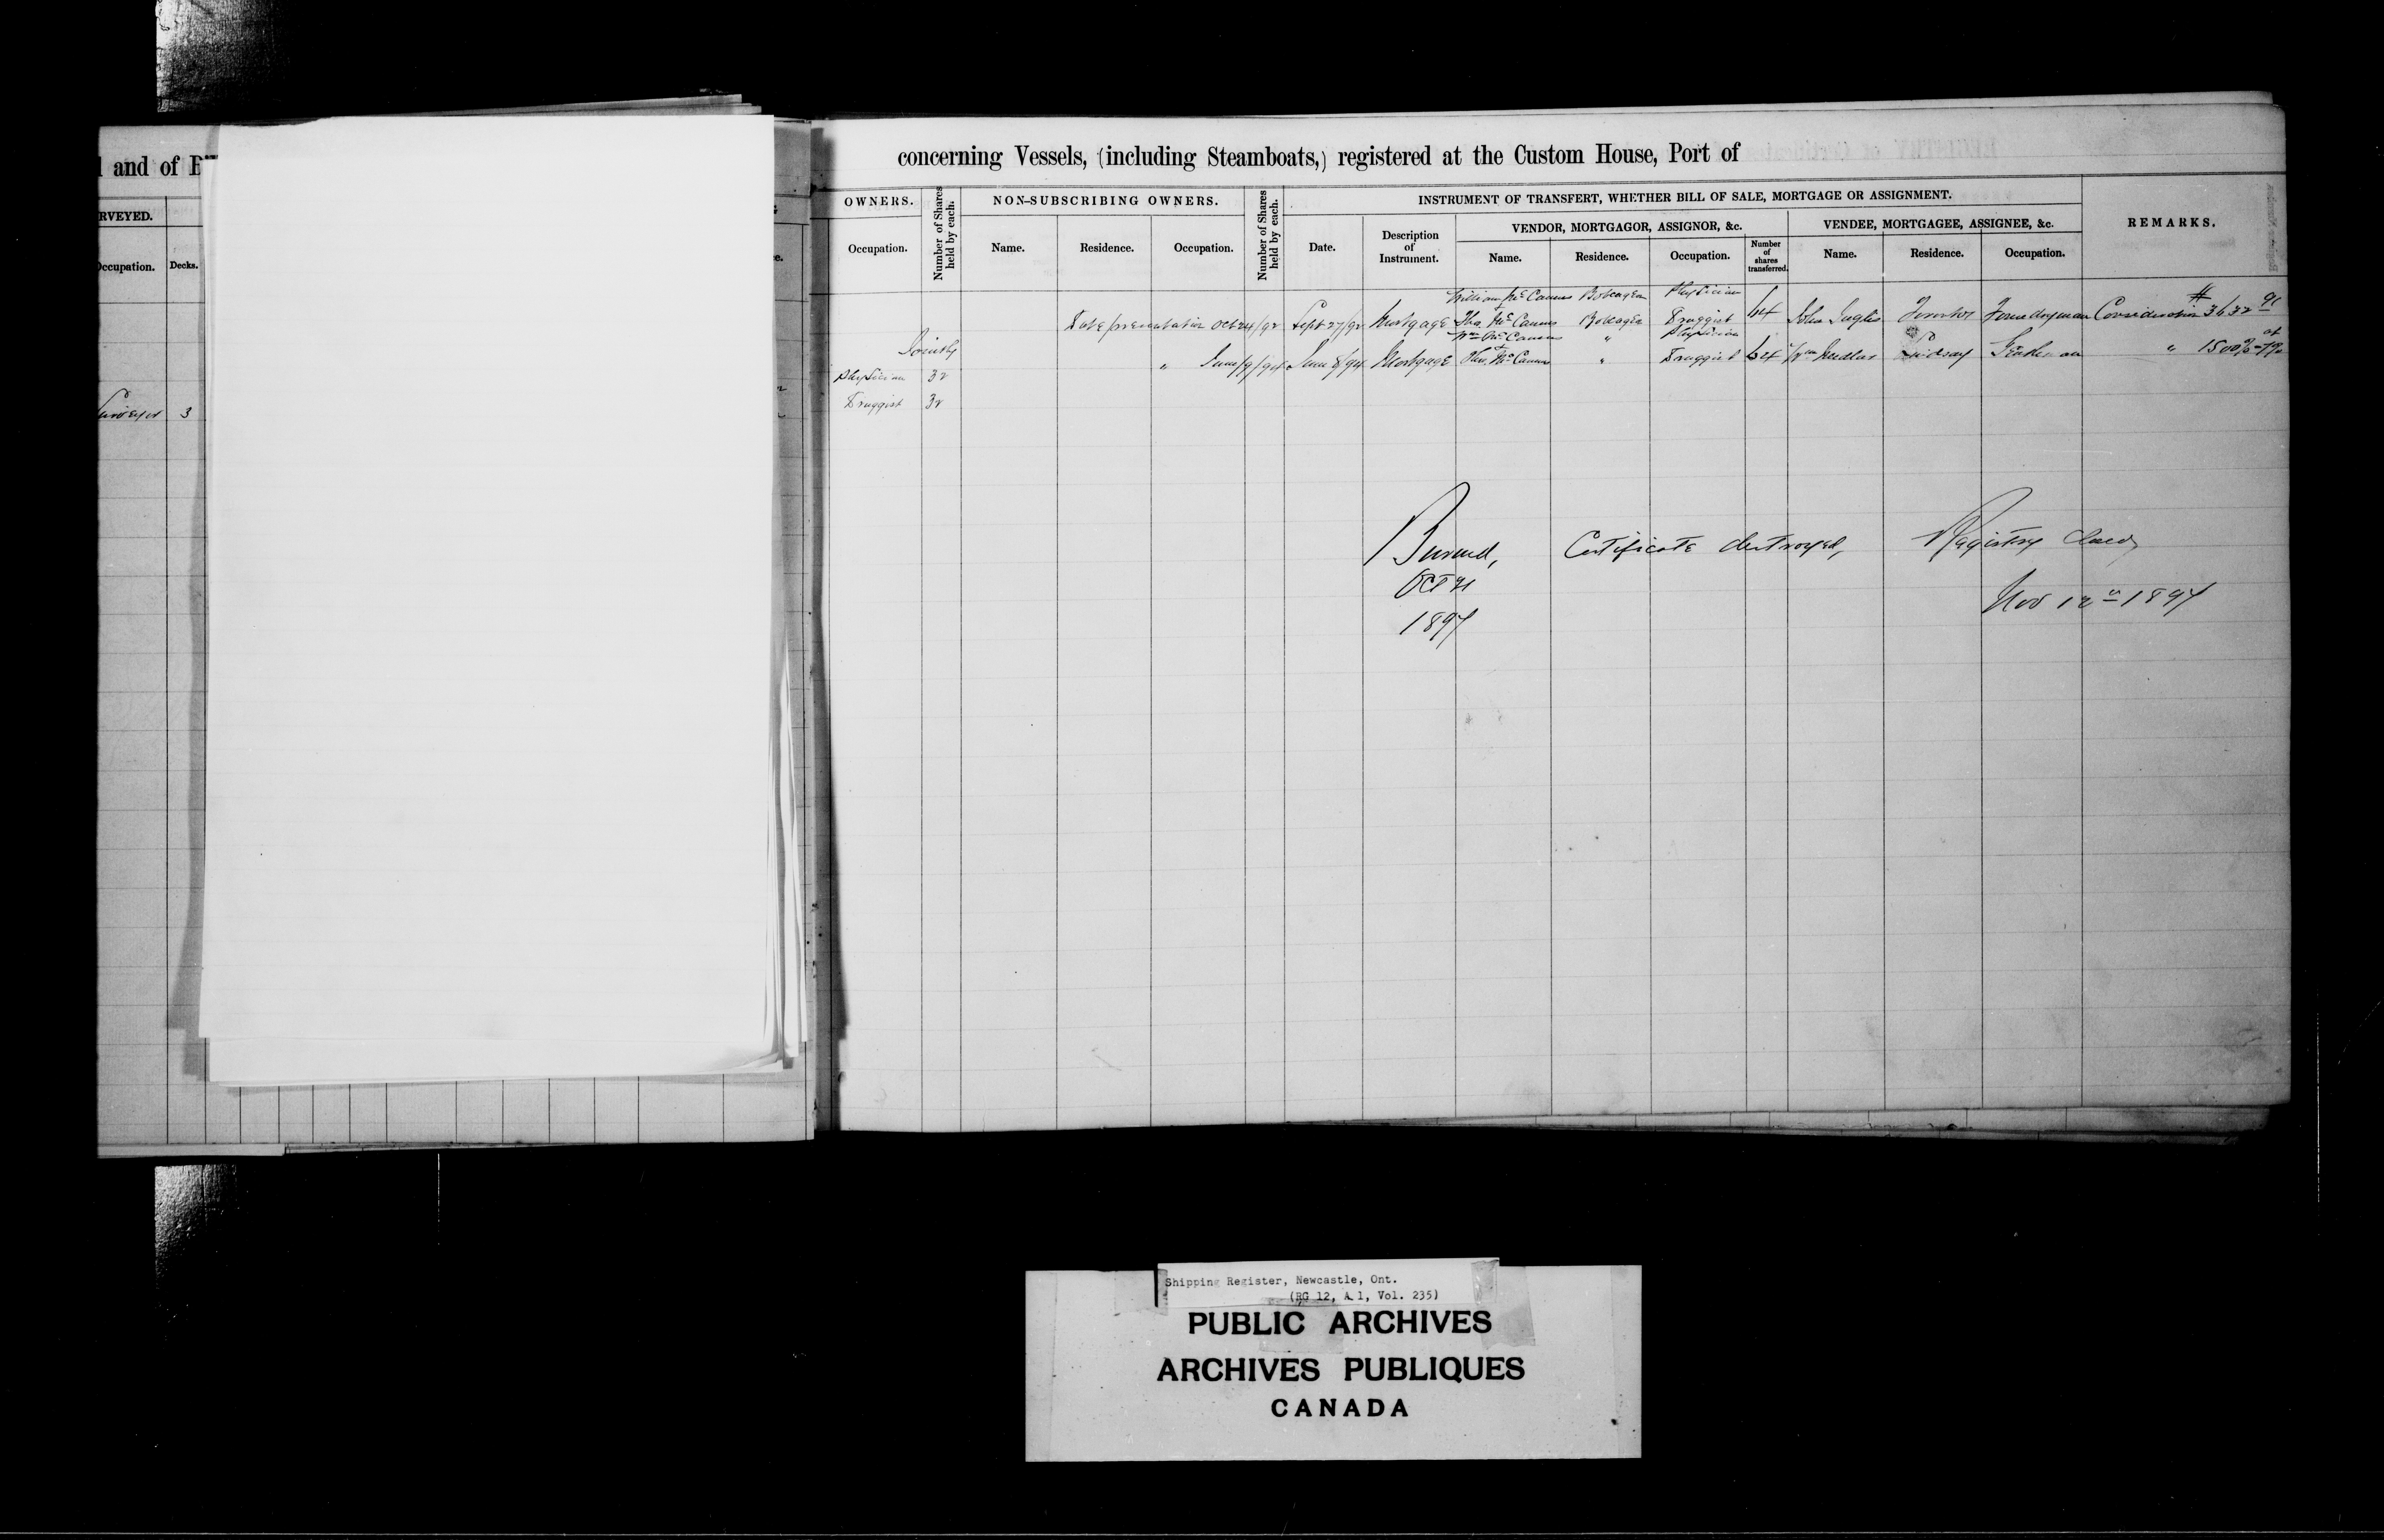 and of
concerning Vessels, (including Steamboats,) registered at the Custom House, Port of
RVEYED.
Occupation.
Decks.
Surveyor 3
OWNERS.
Occupation.
Number of Shares held by each.
NON-SUBSCRIBING OWNERS.
Name.
Residence.
Occupation.
Number of Shares held by each.
INSTRUMENT OF TRANSFERT, WHETHER BILL OF SALE, MORTGAGE OR ASSIGNMENT.
Date.
Description
of
Instrument.
VENDOR, MORTGAGOR, ASSIGNOR, &c.
Name.
Residence.
Occupation.
Number
of
shares
transferred.
VENDEE, MORTGAGEE, ASSIGNEE, &c.
Name.
Residence.
Occupation.
REMARKS.
William McCamus Bobcagen Physician
Date presentation Oct 24/92 Sept 27/92 Mortgage Thos. McCamus Bobcagen Druggist 64 John Inglis Toronto Foundryman Consideration $
Wm McCamus " Physician
Jointly
" June/9/94 June 8/94 Mortgage Thos. McCamus " Druggist 64 Wm Needler Lindsay " 1500
Physician 32
Druggist 32
Burned, Certificate destroyed, Registry closed
Oct 21
1897
Nov 12th 1897
Shipping Register, Newcastle, Ont.
(RG 12, A 1, Vol. 235)
PUBLIC ARCHIVES
ARCHIVES PUBLIQUES
CANADA